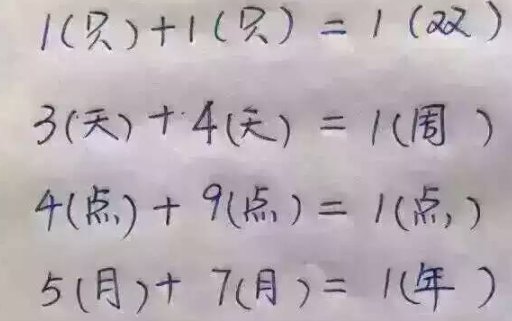 1(只)+1(只)=1(双)
3(天)+4(天)=1(周)
4(点)+9(点)=1(点)
5(月)+7(月)=1(年)